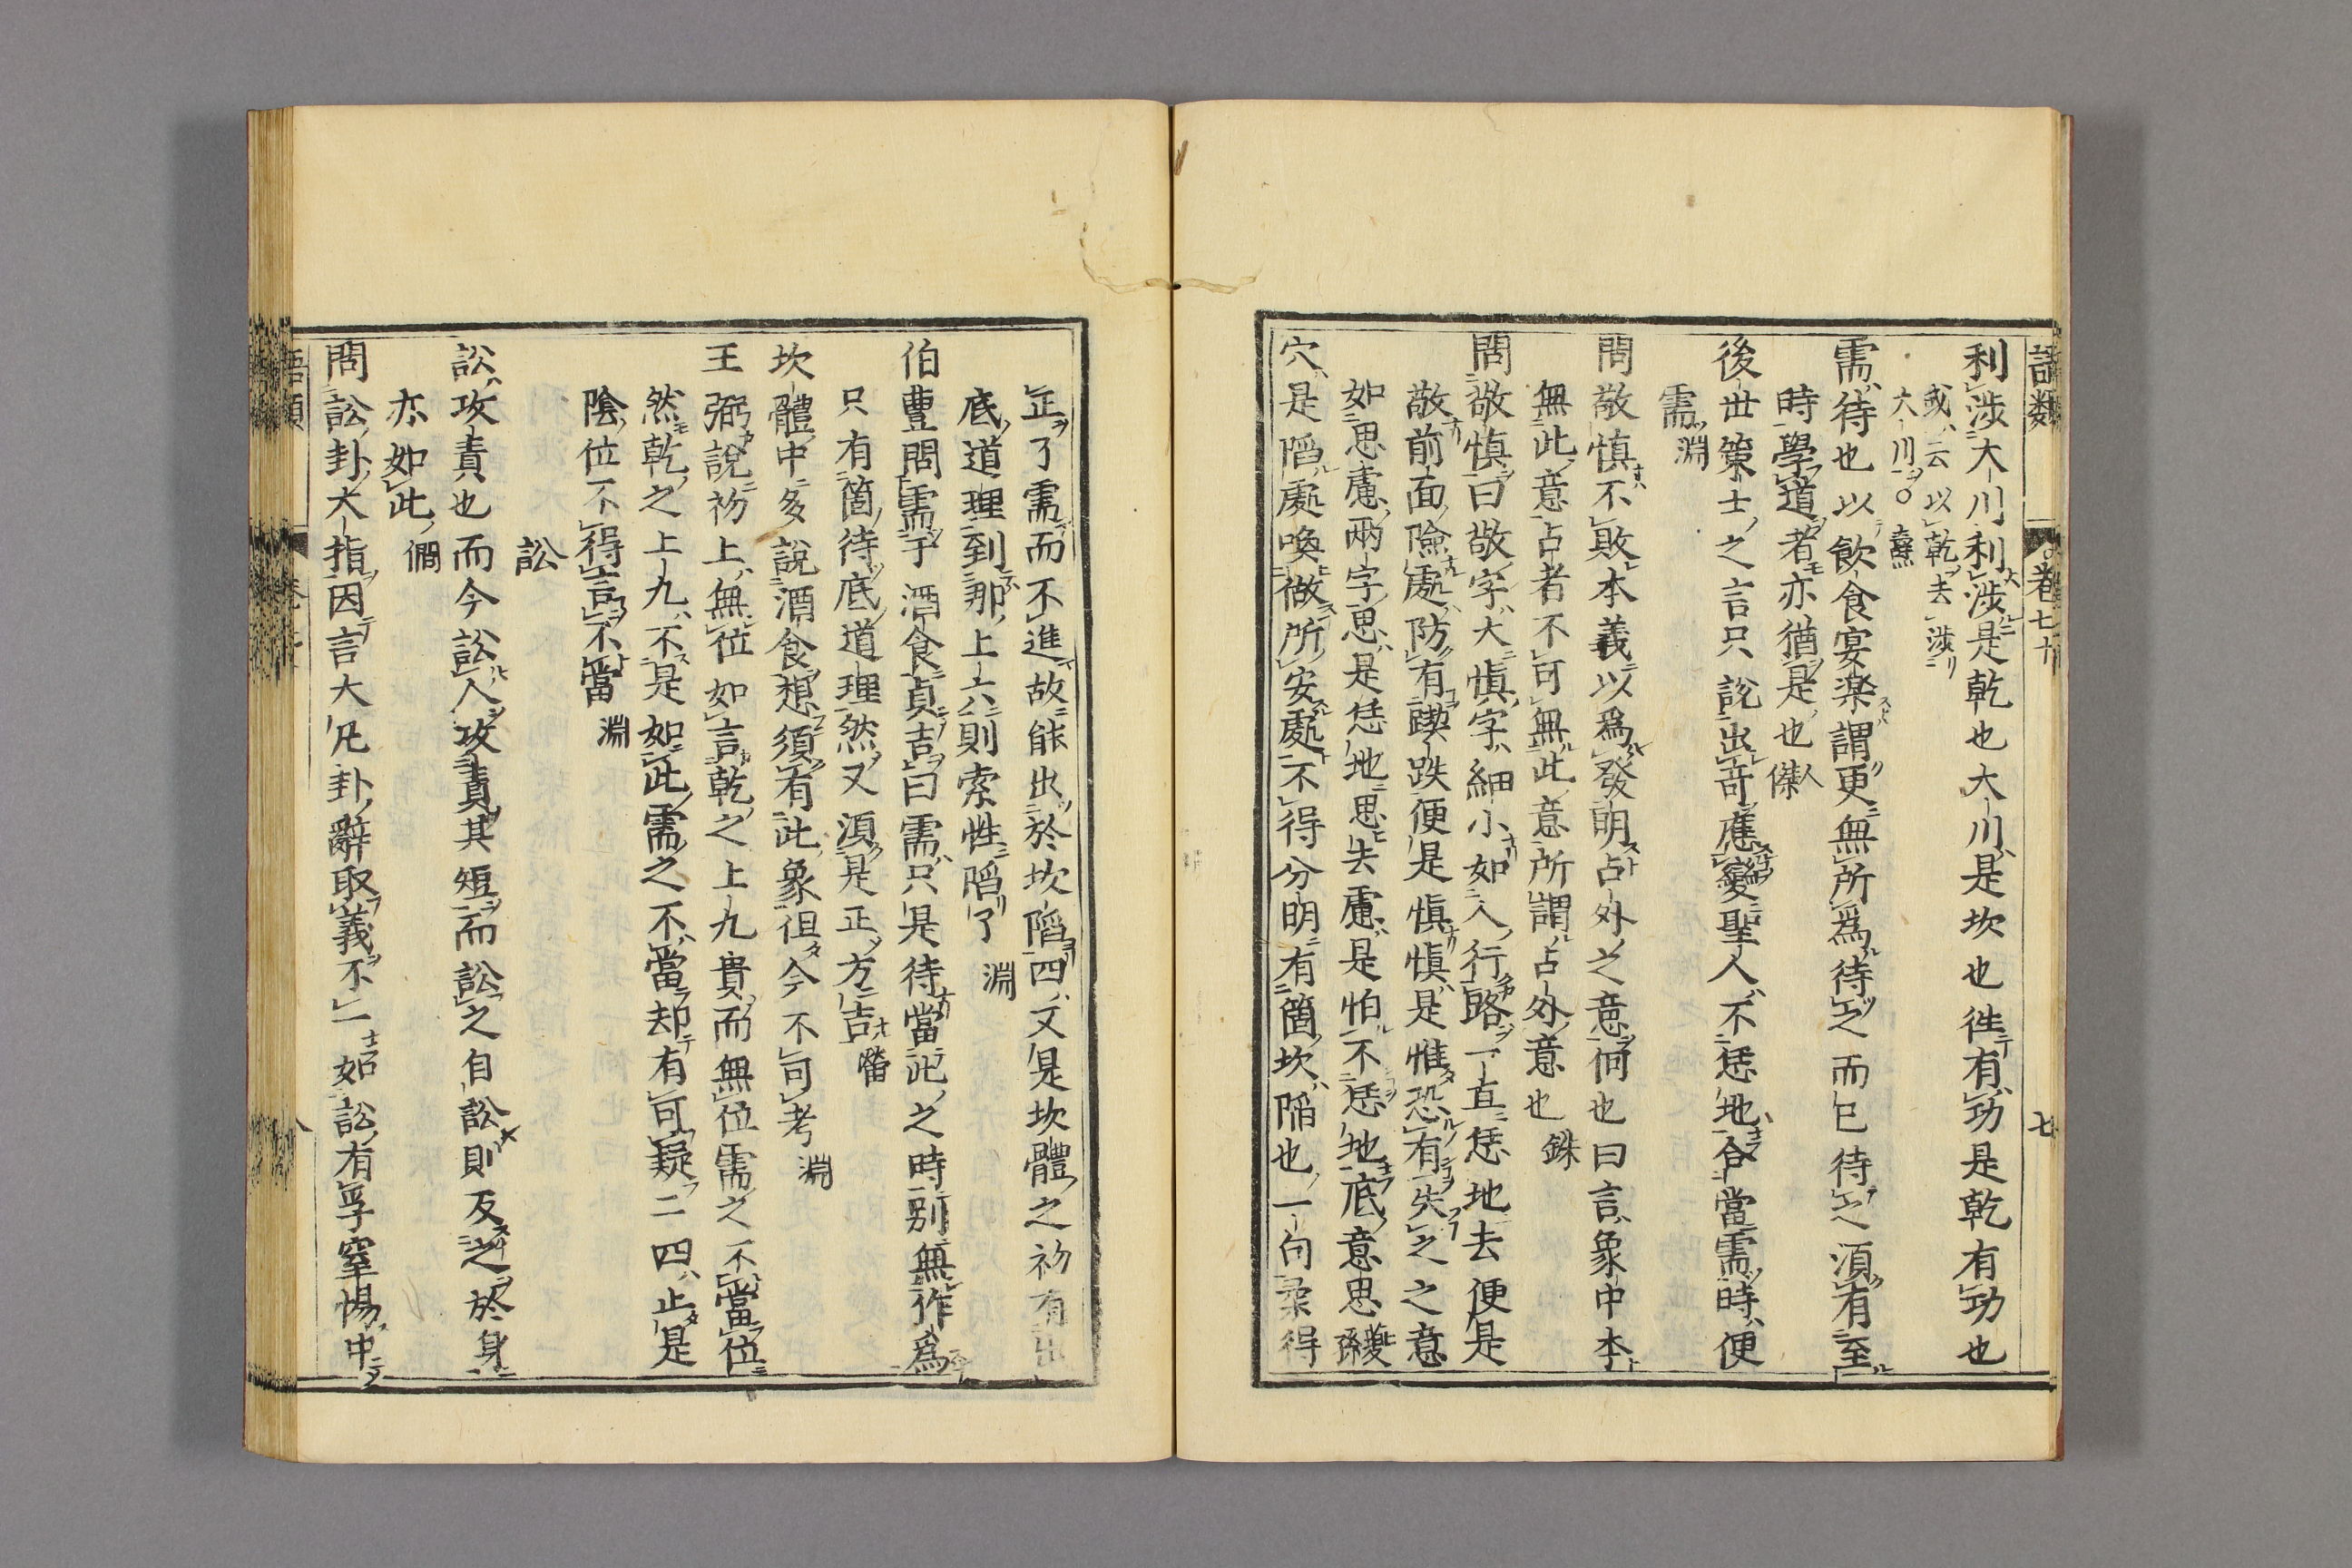 語類 卷七十 七
利涉大川利涉是乾也大川是坎也往有功是乾有功也
或云以乾去涉
大川○𤋮
需待也以飲食宴楽謂更無所爲待之而已待之湏有至
時學道者亦猶是也人傑
後世策士之言只說出竒應變聖人不恁地合當需時便
需淵
問敬慎不敗本義以爲發明占外之意何也曰言象中本
無此意占者不可無此意所謂占外意也銖
問敬慎曰敬字大慎字細小如人行路一直恁地去便是
敬前面險處防有蹉跌便是慎慎是惟恐有失之之意
如思慮兩字思是恁地思去慮是怕不恁地底意思夔孫
穴是陷處喚做所安處不得分明有箇坎陷也一句柔得
正了需而不進故能出於坎陷四又是坎體之初有出
底道理到那上六則索性陷了淵
伯豐問需于酒食貞吉曰需只是待當此之時別無作爲
只有箇待底道理然又湏是正方吉㽦
坎體中多說酒食想須有此象但今不可考淵
王弼說初上無位如言乾之上九貴而無位需之不當位
然乾之上九不是如此需之不當却有可疑二四止是
陰位不得言不當淵
訟
訟攻責也而今訟人攻責其短而訟之自訟則反之於身
亦如此僩
問訟卦大指因言大凡卦辭取義不一如訟有孚窒惕中
語類 卷七十 八